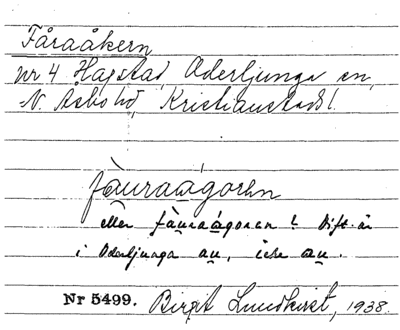 Fåraåkern
nr 4 Hagstad, Oderljunga sn,
N. Åsbo hd, Kristianstads l.
fàuraágorn
eller fàuraágoran? Dift. är
i Oderljunga au, icke au.
Nr 5499. Birgit Lundkvist, 1938.